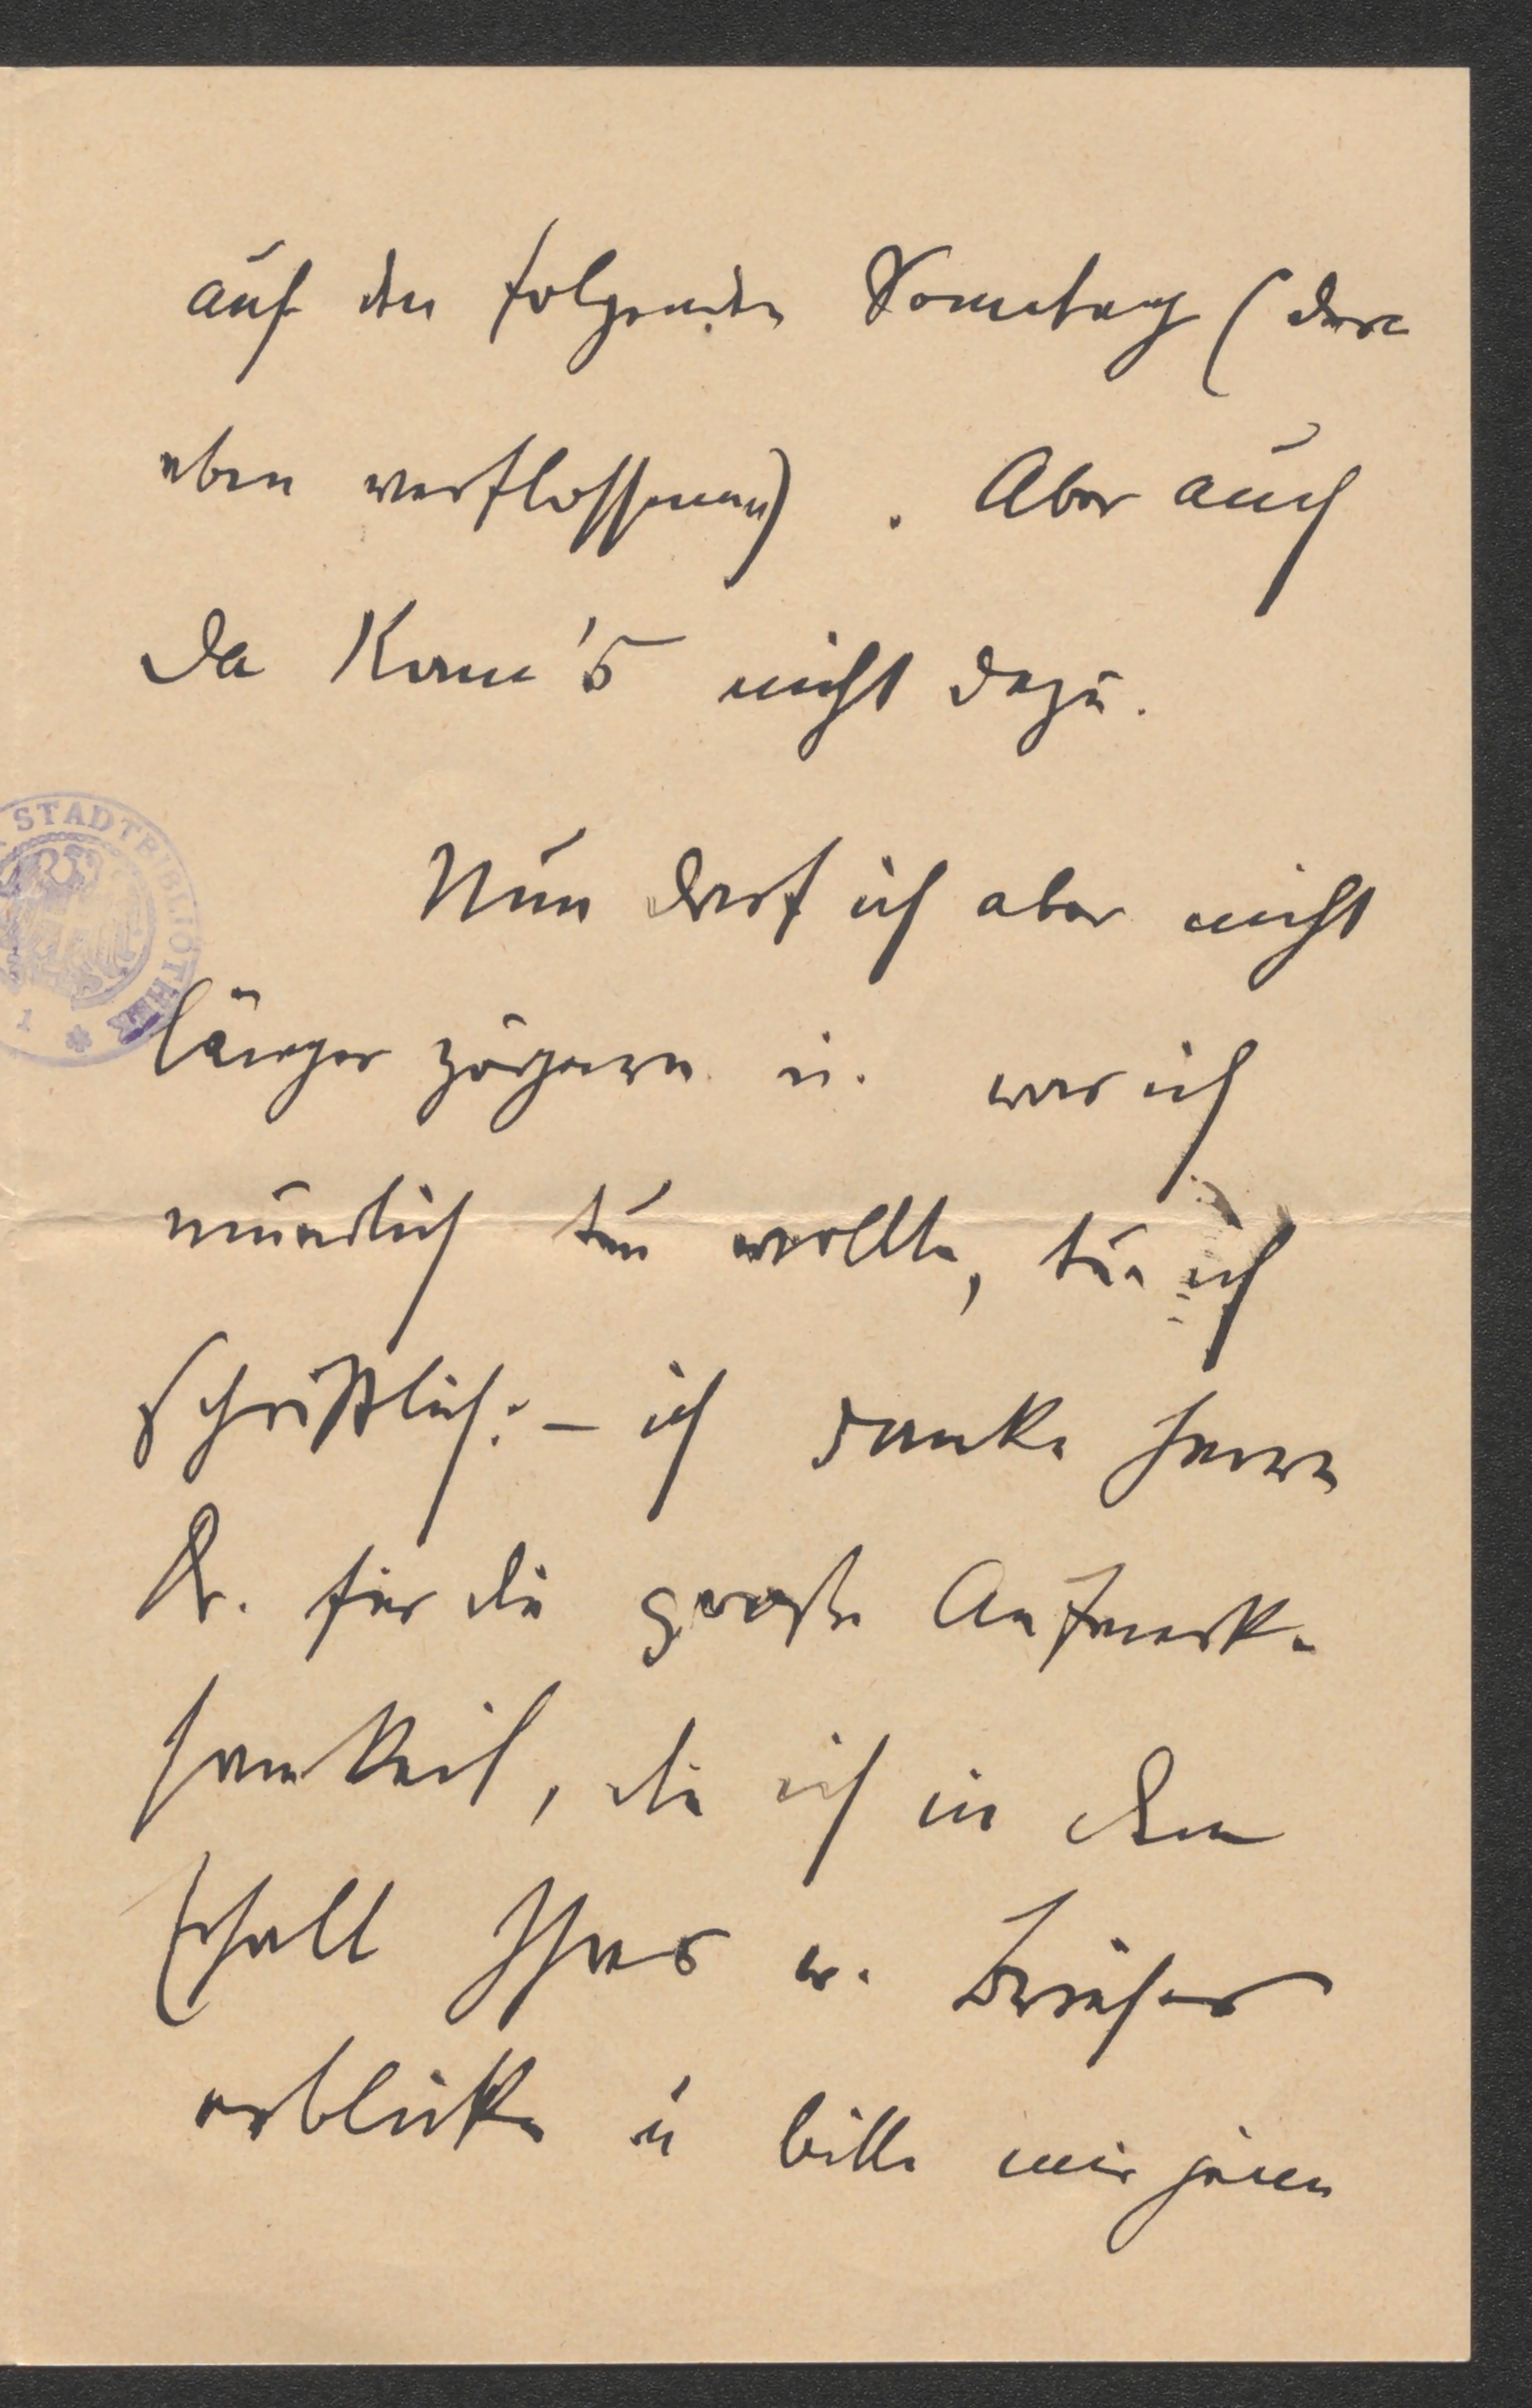 auf den folgenden Sonntag (den
eben verflossenen). Aber auch
da kam's nicht dazu.
Nun darf ich aber nicht
STADTBIBLIOTHEK
länger zögern u. was ich
mündlich tun wollte, tue ich
schriftlich: – ich danke Herrn
Dr. für die große Aufmerk-
samkeit, die ich in dem
Erhalt Ihres w. Buches
erblicke u bitte mir jenen